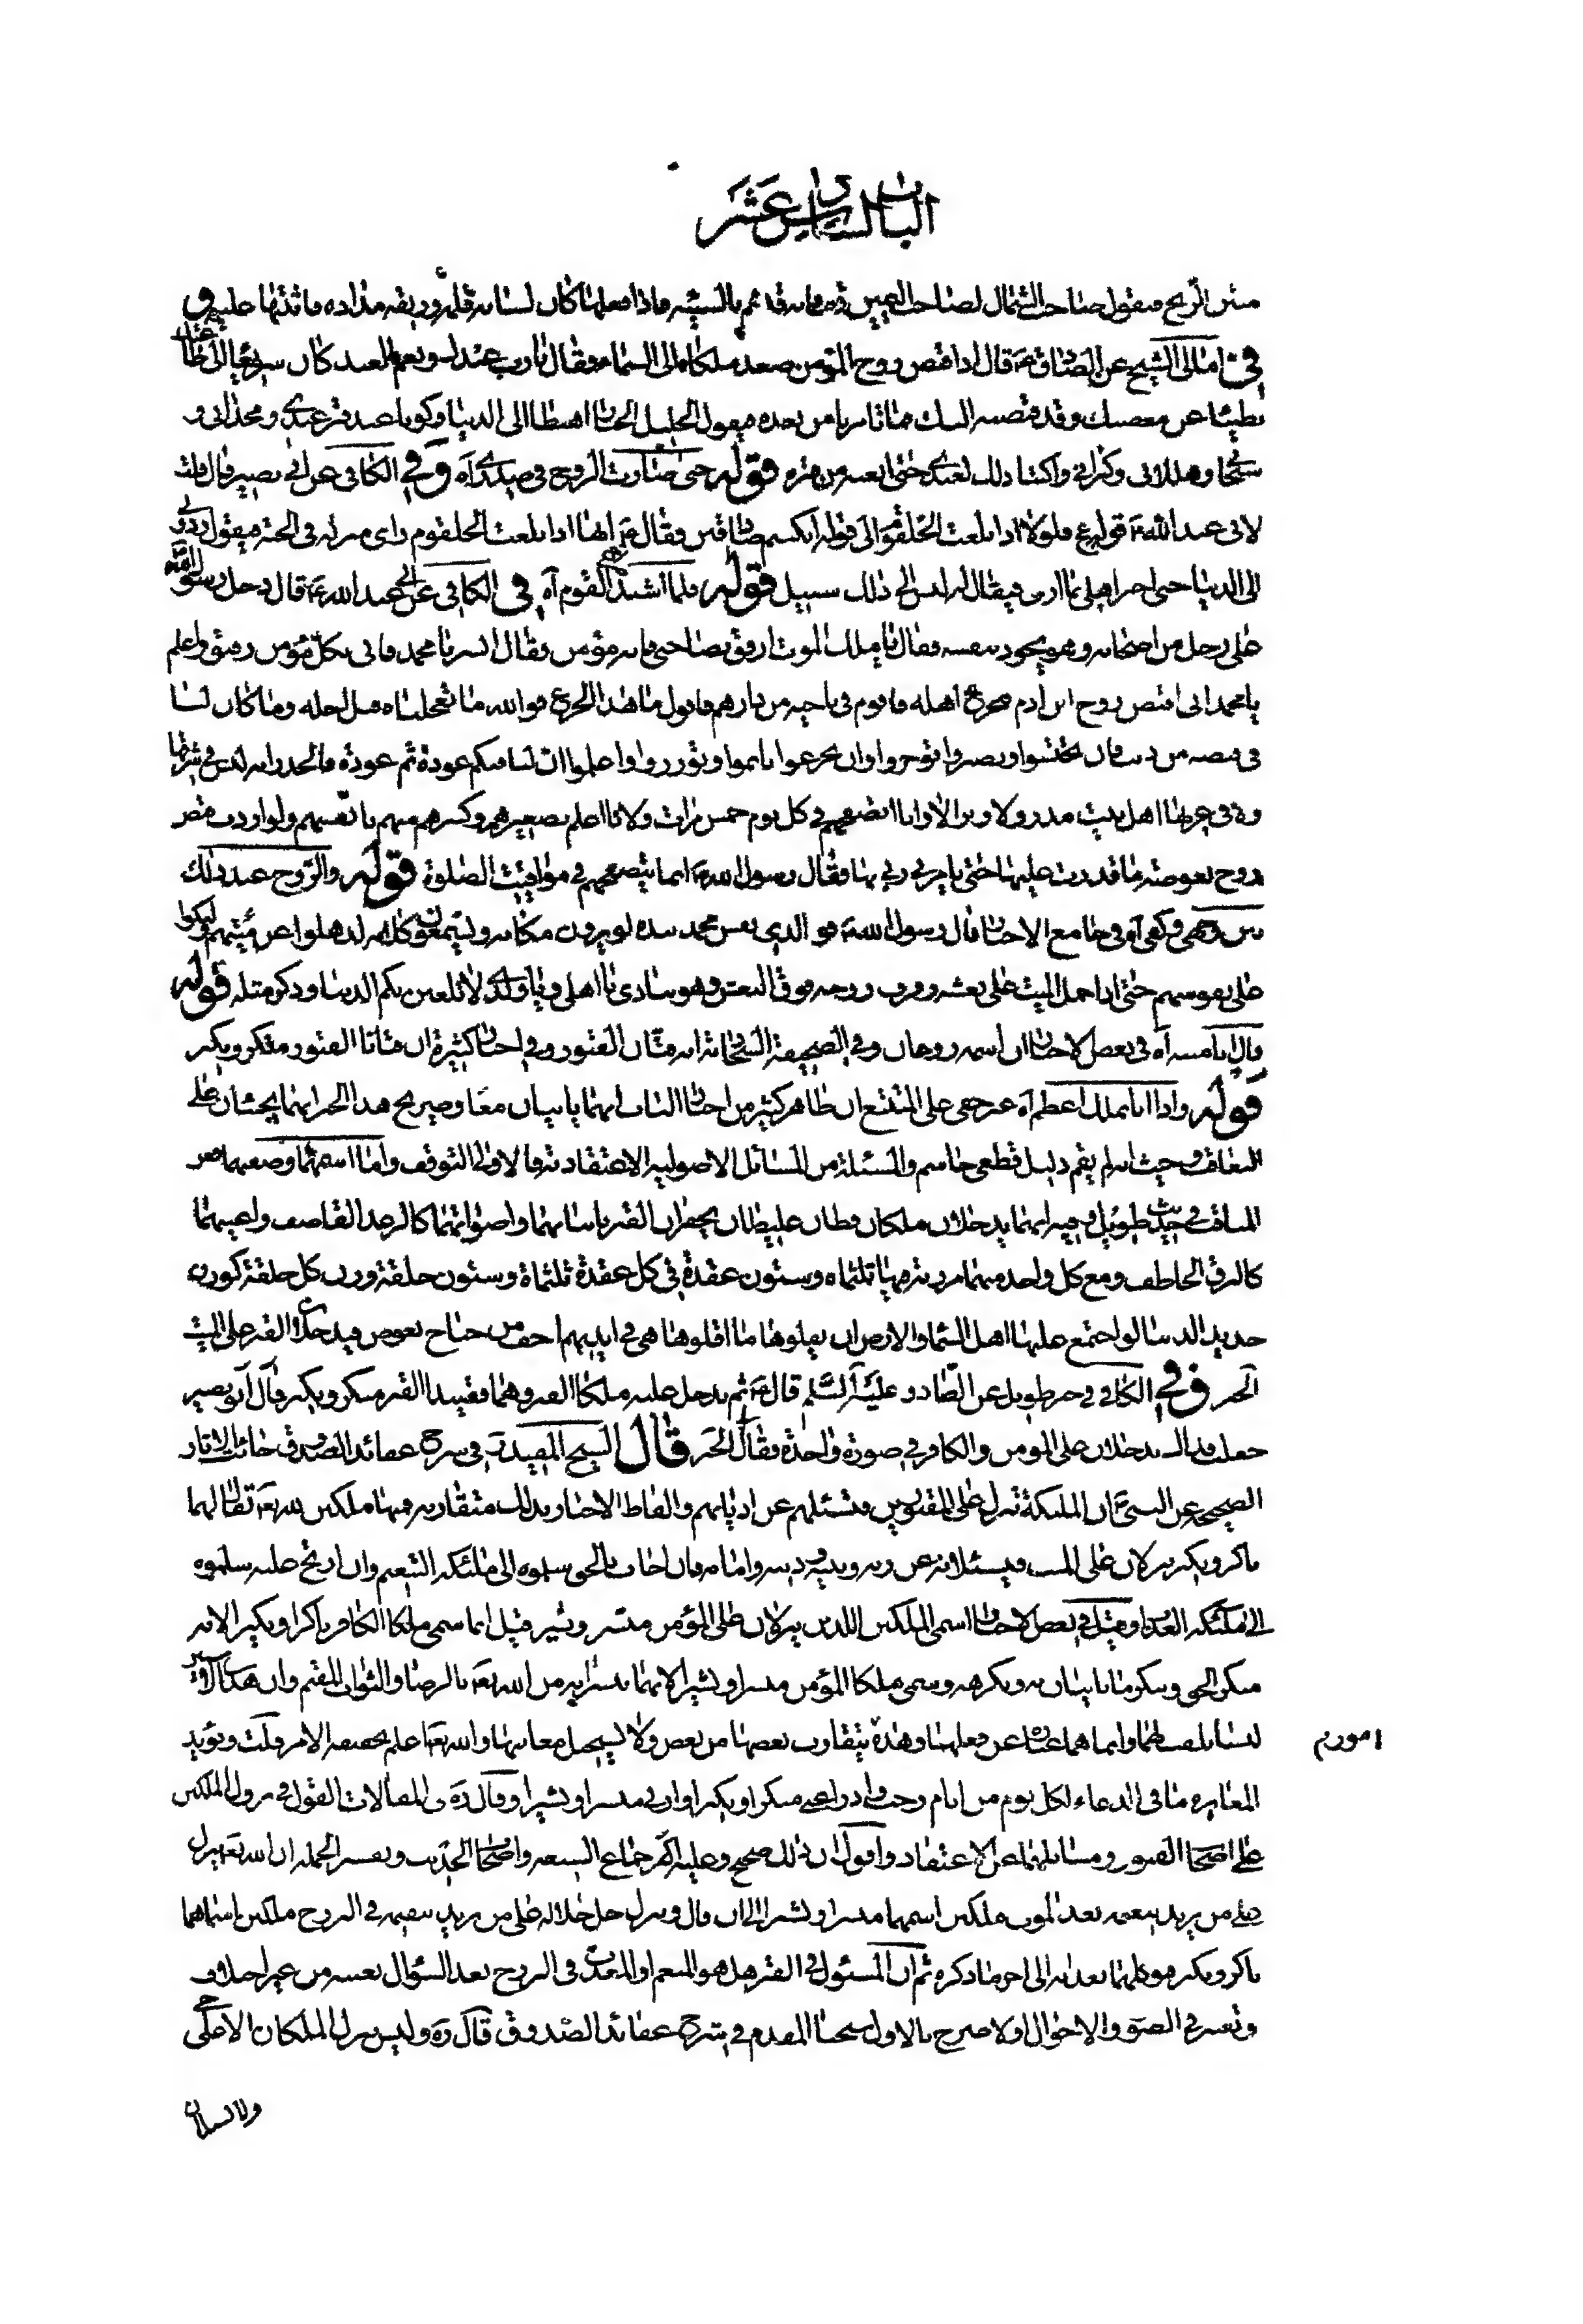 الباب السادس عشر
منتن الريح فيقول صاحب الشمال لصاحب اليمين قف فانه قد هم بالسيئة فاذا فعلها كان لسانه قلمه وريقه مداده فاثبتها عليه و
في امالى الشيخ عن الصادق ع قال اذا قبض روح المؤمن صعد ملكاه الى السماء فقال يا رب عبدك ونعم العبد كان سريعا الى طاعتك
بطيئا عن معصيتك وقد قبضته اليك فما تامرنا من بعده فيقول الجليل الجبار اهبطا الى الدنيا وكونا عند قبر عبدي ومجداني و
سبحاني وهللاني وكبراني واكتبا ذلك لعبدي حتى ابعثه من قبره قوله حتى صارت الروح في صدره آه وفي الكافي عن ابي بصير قال قلت
لابي عبد الله ع قوله ع فلولا اذا بلغت الحلقوم الى قوله ان كنتم صادقين فقال ع انها اذا بلغت الحلقوم راى منزله في الجنة فيقول ردوني
الى الدنيا حتى اخبر اهلي بما ارى فيقال له ليس الى ذلك سبيل قوله فلما اشتد القوم آه في الكافي عن ابي عبد الله ع قال دخل رسول الله
على رجل من اصحابه وهو يجود بنفسه فقال يا ملك الموت ارفق بصاحبي فانه مؤمن فقال ابشر يا محمد فاني بكل مؤمن رفيق واعلم
يا محمد اني اقبض روح ابن ادم فيجزع اهله فاقوم في ناحية من دارهم فاقول ما هذا الجزع فوالله ما تعجلناه قبل اجله وما كان لنا
في قبضه من ذنب فان تحتسبوا وتصبروا توجروا وان تجزعوا تاثموا وتوزروا واعلموا ان لنا فيكم عودة ثم عودة فالحذر انه ليس في شرقها
ولا في غربها اهل بيت مدر ولا وبر الا وانا اتصفحهم في كل يوم خمس مرات ولانا اعلم بصغيرهم وكبيرهم منهم بانفسهم ولو اردت قبض
روح بعوضة ما قدرت عليها حتى يامرني ربي بها فقال رسول الله ص انما يتصفحهم في مواقيت الصلوة قوله والروح عند ذلك
آه وفي جامع الاخبار قال رسول الله ص فو الذي نفس محمد بيده لو يرون مكانه ويسمعون كلامه لذهلوا عن ميتهم وليبكوا
على نفوسهم حتى اذا حمل الميت على نعشه رفرف روحه فوق النعش وهو ينادي يا اهلي ويا ولدي لا تلعبن بكم الدنيا وذكر مثله قوله
قال يا منبه آه في بعض الاخبار ان اسمه رومان وفي الصحيفة السجادية انه فتان القبور وفي اخبار كثيرة ان فتانا القبور منكر ونكير
قوله واذا اتاه ملك اعظم آه غير خفي على المتتبع ان ظاهر كثير من اخبار الباب انهما ياتيان معا وصريح هذا الخبر انهما يجيئان على
التعاقب وحيث انه لم يقم دليل قطعي حاسم والمسئلة من المسائل الاصولية الاعتقادية فالاولى التوقف واما اسمهما وصفتهما ففي
المناقب في حديث طويل وفيه انهما يدخلان ملكان فظان غليظان يحفران القبر بانيابهما واصواتهما كالرعد القاصف واعينهما
كالبرق الخاطف ومع كل واحد منهما مرزبة فيها ثلثماة وستون عقدة في كل عقدة ثلثماة وستون حلقة وزن كل حلقة كوزن
حديد الدنيا لو اجتمع عليها اهل السماء والارض ان يقلوها ما اقلوها هي في ايديهم اخف من جناح بعوض فيدخلان القبر على الميت
الخبر وفي الكافي في خبر طويل عن الصادق عليه السلم قال ع ثم يدخل عليه ملكا القبر وهما قعيدا القبر منكر ونكير قال ابو بصير
جعلت فداك يدخلان على المؤمن والكافر في صورة واحدة فقال لا الخبر قال الشيخ المفيد ره في شرح عقائد الصدوق جائت الاثار
الصحيحة عن النبي ص ان الملئكة تنزل على المقبورين فتسئلهم عن اديانهم والفاظ الاخبار بذلك متقاربة فمنها ملكين لله تع يقال لهما
ناكر ونكير ينزلان على الميت فيسئلانه عن ربه ونبيه ودينه وامامه فان اجاب بالحق سلموه الى ملئكة النعيم وان ارتج عليه سلموه
الى ملئكة العذاب وقيل في بعض الاخبار اسمي الملكين اللذين ينزلان على المؤمن مبشر وبشير قيل انما سمي ملكا الكافر ناكرا ونكيرا لانه
ينكر الحق وينكر ما ياتيان به ويكرهه وسمي ملكا المؤمن مبشرا وبشيرا لانهما يبشرانه من الله تع بالرضا والثواب المقيم وان هذين الاسمين
ليسا بلقب لهما وانما هما عبارة عن فعلهما وهذه امور يتقارب بعضها من بعض ولا يستحيل معانيها والله تع اعلم بحقيقة الامر قلت ويؤيد
المغايرة ما في الدعاء لكل يوم من ايام رجب وادرا عني منكرا ونكيرا وار عيني مبشرا وبشيرا وقال ره في المقالات القول في نزول الملكين
على اصحاب القبور ومسائلتهما عن الاعتقاد واقول ان ذلك صحيح وعليه اجماع الشيعة واصحاب الحديث وتفسير الجملة ان الله تع ينزل
على من يريد تنعيمه بعد الموت ملكين اسمهما مبشر وبشير الى ان قال وينزل جل جلاله على من يريد تعذيبه في البرزخ ملكين اسماهما
ناكر ونكير يوكلهما بعذابه الى اخر ما ذكره ثم ان المسئول في القبر هل هو المنعم او المعذب في البرزخ بعد السؤال بعينه من غير اختلاف
وتغير في الصور والاحوال او لا صرح بالاول شيخنا المقدم في شرح عقائد الصدوق قال ره وليس ينزل الملكان الا على حي
ولا يسئلان